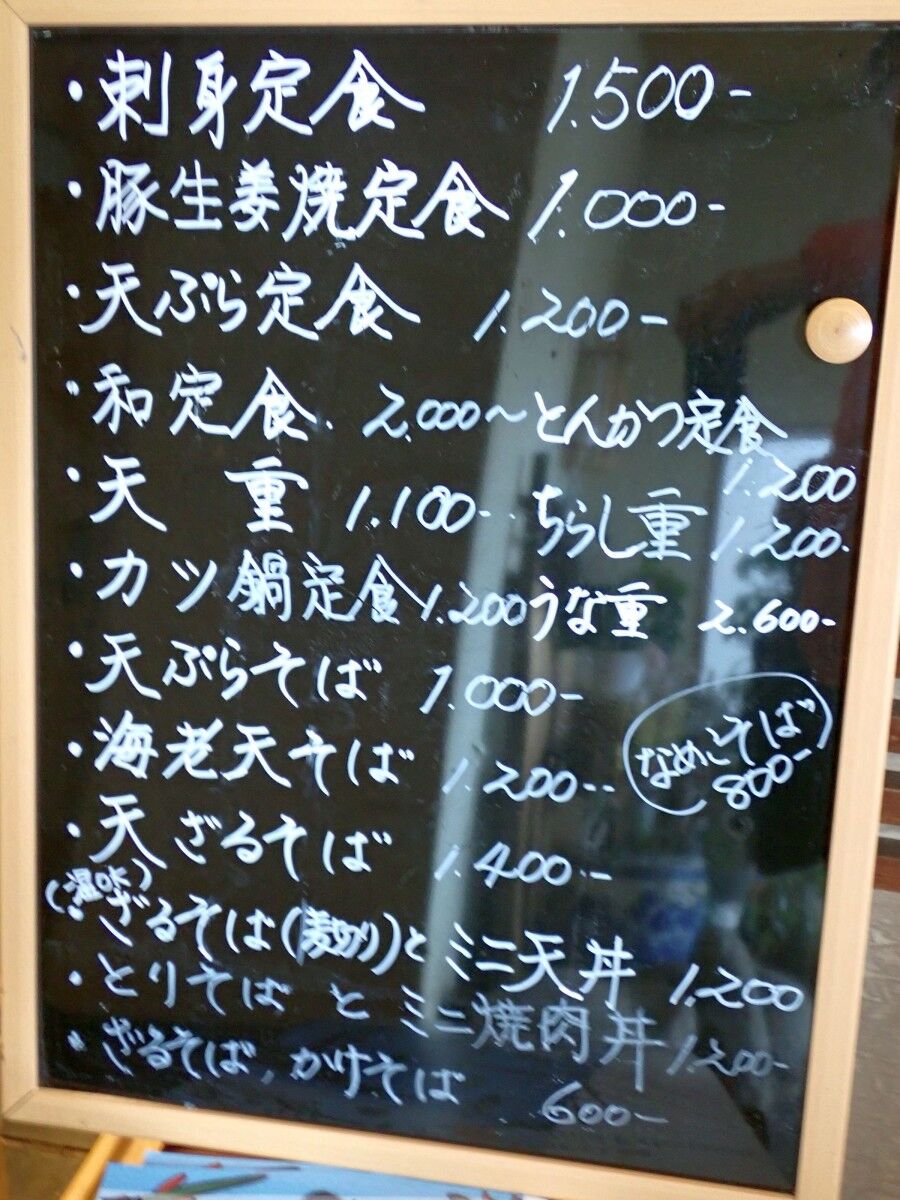 ・刺身定食 1.500-
・豚生姜焼定食 1.000-
・天ぷら定食 1.200-
・和定食 2.000〜とんかつ定食
1.200
・天 重 1.100- ちらし重 1.200-
・カツ鍋定食 1.200 うな重 2.600-
・天ぷらそば 1.000-
なめこそば
800-
・海老天そば 1.200-
・天ざるそば 1.400-
(温OK)
・ざるそば(麦切り)とミニ天丼 1.200
・とりそば と ミニ焼肉丼 1.200-
・ざるそば,かけそば 600-